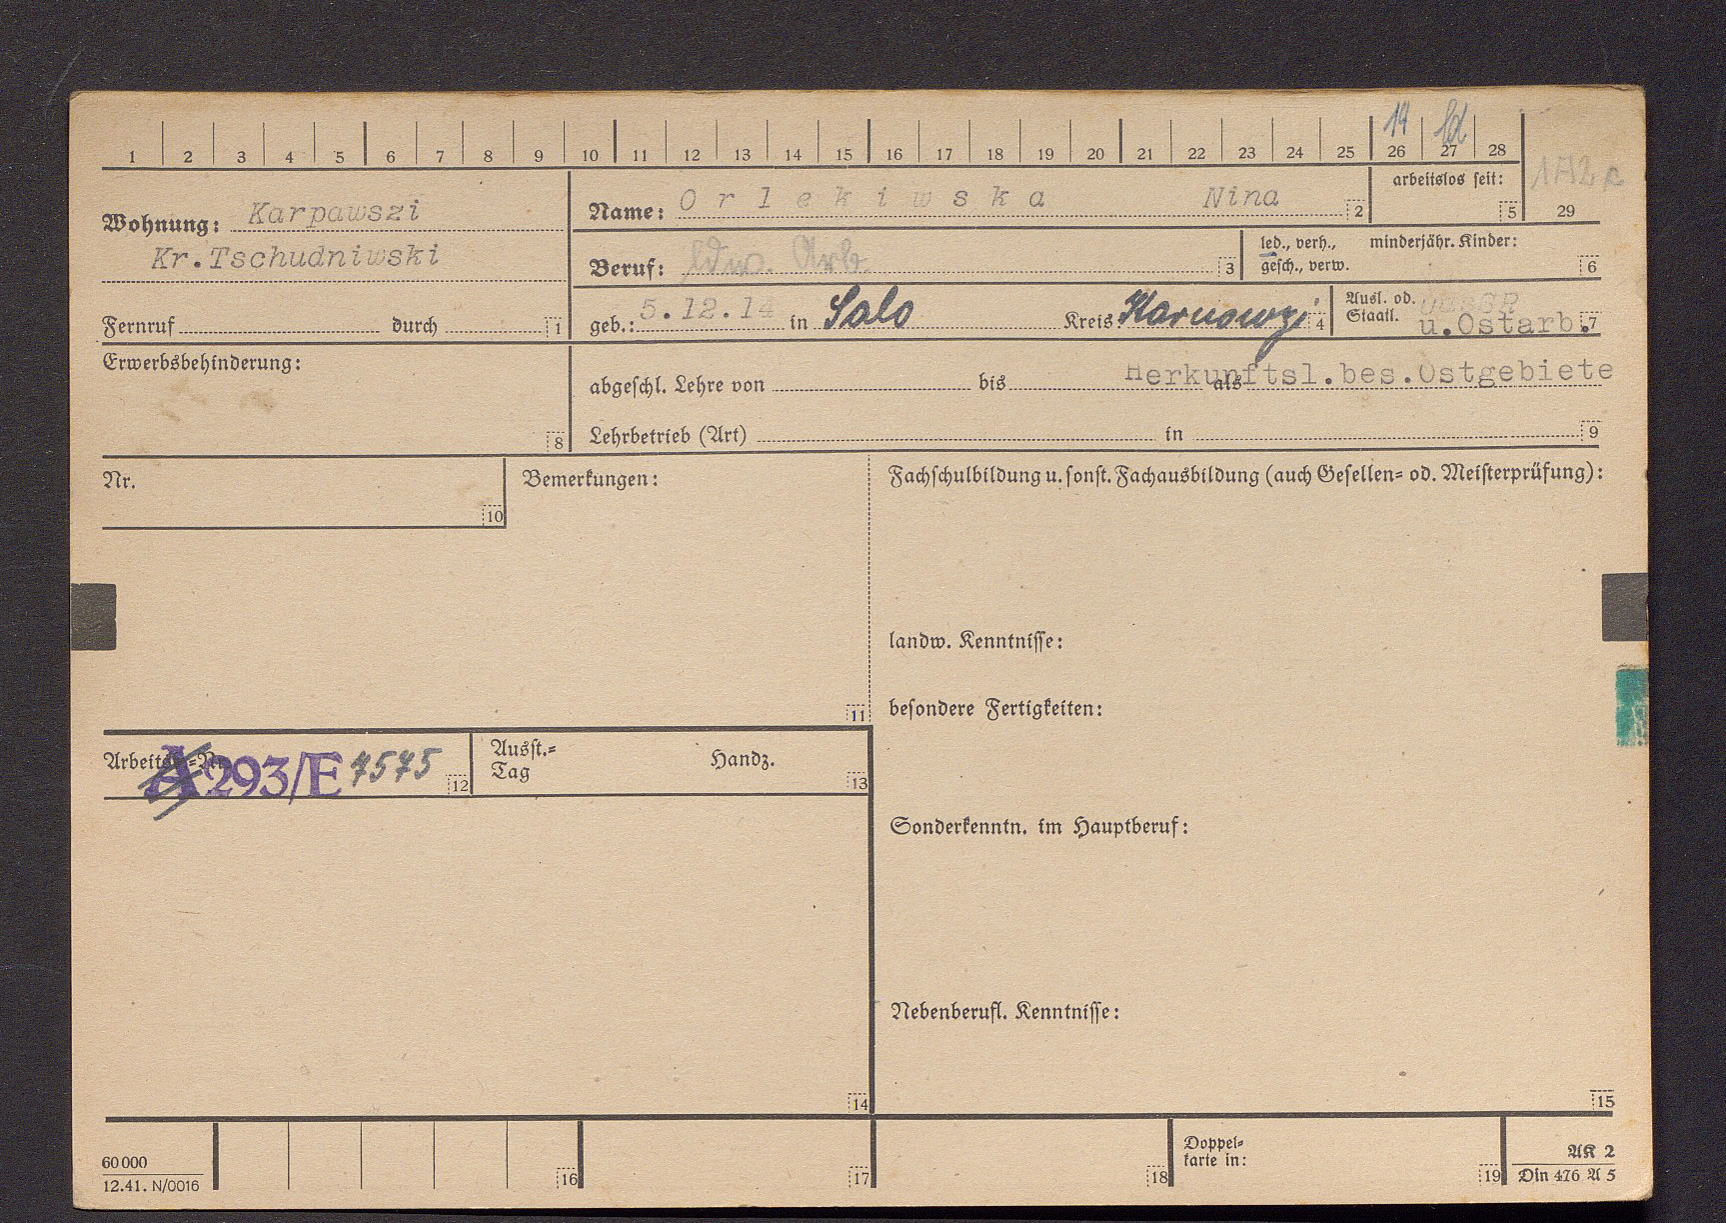 14 ld
1 2 3 4 5 6 7 8 9 10 11 12 13 14 15 16 17 18 19 20 21 22 23 24 25 26 27 28
arbeitslos seit: 5
29
Wohnung: Karpawszi
Kr.Tschudniwski
Fernruf durch 1
Name: Orlekiwska Nina 2
Beruf: ldw. Arb. 3
led., verh., minderjähr. Kinder:
gesch., verw. 6
geb.: 5.12.14 in Salo Kreis: 4
Ausl. od.
Staatl. u.Ostarb. 7
Erwerbsbehinderung:
8
Herkunftsl.bes.Ostgebiete
abgeschl. Lehre von bis als
Lehrbetrieb (Art) in 9
Nr.
10
Bemerkungen:
11
Fachschulbildung u. sonst. Fachausbildung (auch Gesellen= od. Meisterprüfung):
landw. Kenntnisse:
besondere Fertigkeiten:
Arbeitsb.=Nr. A 293/E 7575 12
Ausst.=
Tag Handz. 13
Sonderkenntn. im Hauptberuf:
Nebenberufl. Kenntnisse:
14
15
60000
12.41. N/0016
16 17 18
Doppel=
karte in: 19
AK 2
Din 476 A 5